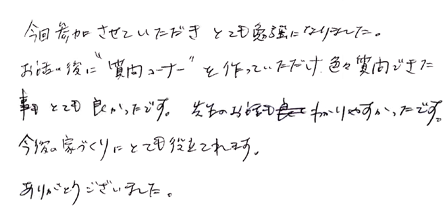 今回参加させていただきとても勉強になりました。
お話の後に"質問コーナー"を作っていただけ色々質問できた
事もとても良かったです。先生のお話もわかりやすかったです。
今後の家づくりにとても役立てれます。
ありがとうございました。